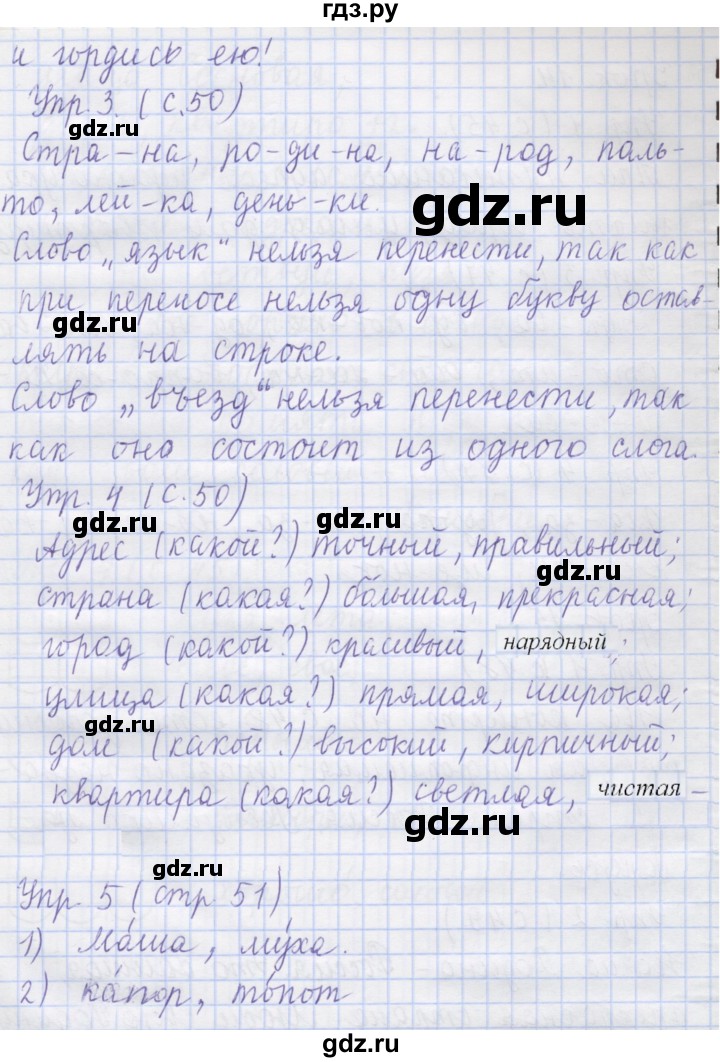 гдз.ру
и гордись ею!
Упр. 3. (с. 50)
gdz.ru
Стра-на, ро-ди-на, на-род, паль-
gdz.ru
то, лей-ка, день-ки.
gdz.ru
Слово „язык“ нельзя перенести, так как
при переносе нельзя одну букву остав-
gdz.ru
лять на строке.
Слово „въезд“ нельзя перенести, так
как оно состоит из одного слога.
Упр. 4 (с. 50)
gdz.ru gdz.ru
Адрес (какой?) точный, правильный;
gdz.ru
страна (какая?) большая, прекрасная;
город (какой?) красивый, нарядный;
улица (какая?) прямая, широкая;
gdz.ru
дом (какой?) высокий, кирпичный;
квартира (какая?) светлая, чистая –
gdz.ru
gdz.ru
Упр. 5 (стр. 51)
1) Ма́ша, му́ха.
2) ка́пор, то́пот
gdz.ru
гдз.ру